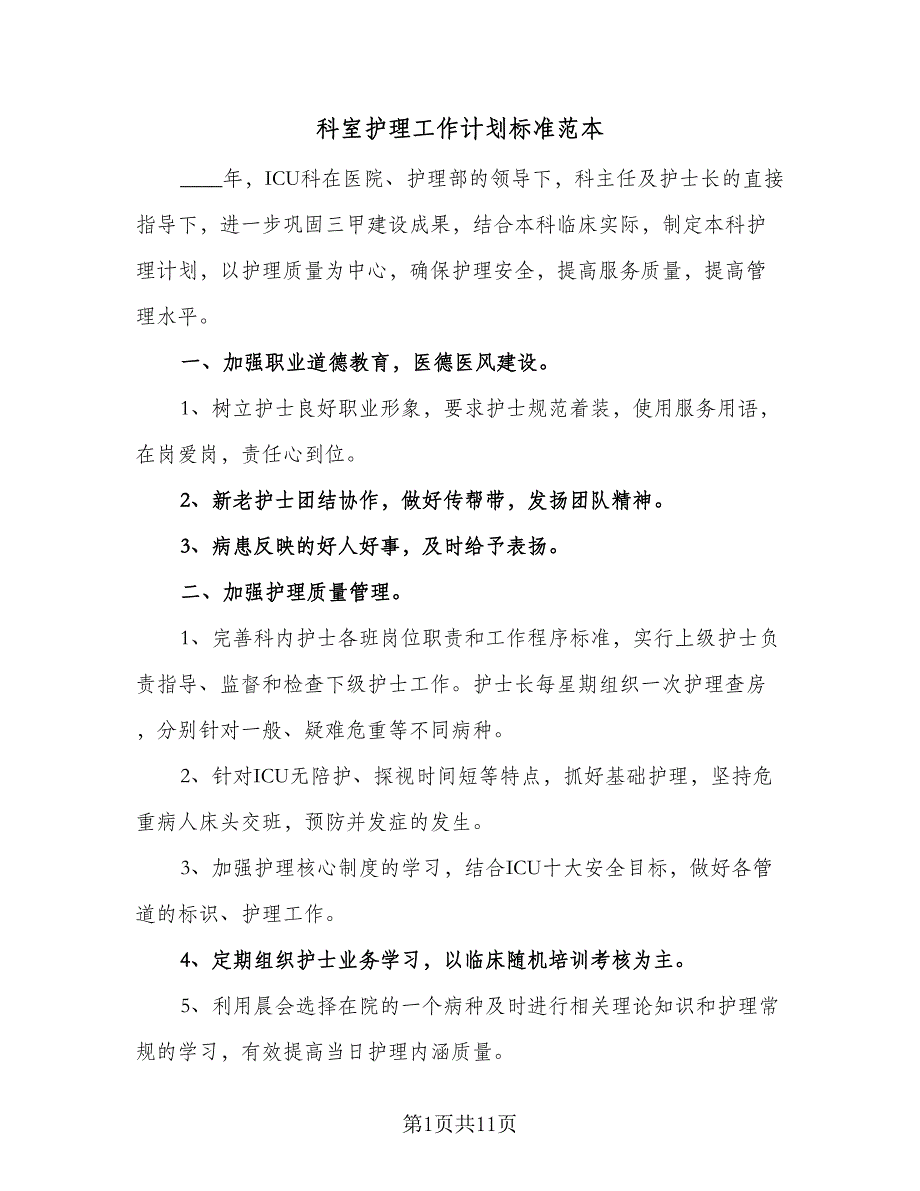 科室护理工作计划标准范本
____年，ICU科在医院、护理部的领导下，科主任及护士长的直接
指导下，进一步巩固三甲建设成果，结合本科临床实际，制定本科护
理计划，以护理质量为中心，确保护理安全，提高服务质量，提高管
理水平。
一、加强职业道德教育，医德医风建设。
1、树立护士良好职业形象，要求护士规范着装，使用服务用语，
在岗爱岗，责任心到位。
2、新老护士团结协作，做好传帮带，发扬团队精神。
3、病患反映的好人好事，及时给予表扬。
二、加强护理质量管理。
1、完善科内护士各班岗位职责和工作程序标准，实行上级护士负
责指导、监督和检查下级护士工作。护士长每星期组织一次护理查房
，分别针对一般、疑难危重等不同病种。
2、针对ICU无陪护、探视时间短等特点，抓好基础护理，坚持危
重病人床头交班，预防并发症的发生。
3、加强护理核心制度的学习，结合ICU十大安全目标，做好各管
道的标识、护理工作。
4、定期组织护士业务学习，以临床随机培训考核为主。
5、利用晨会选择在院的一个病种及时进行相关理论知识和护理常
规的学习，有效提高当日护理内涵质量。
第1页共11页